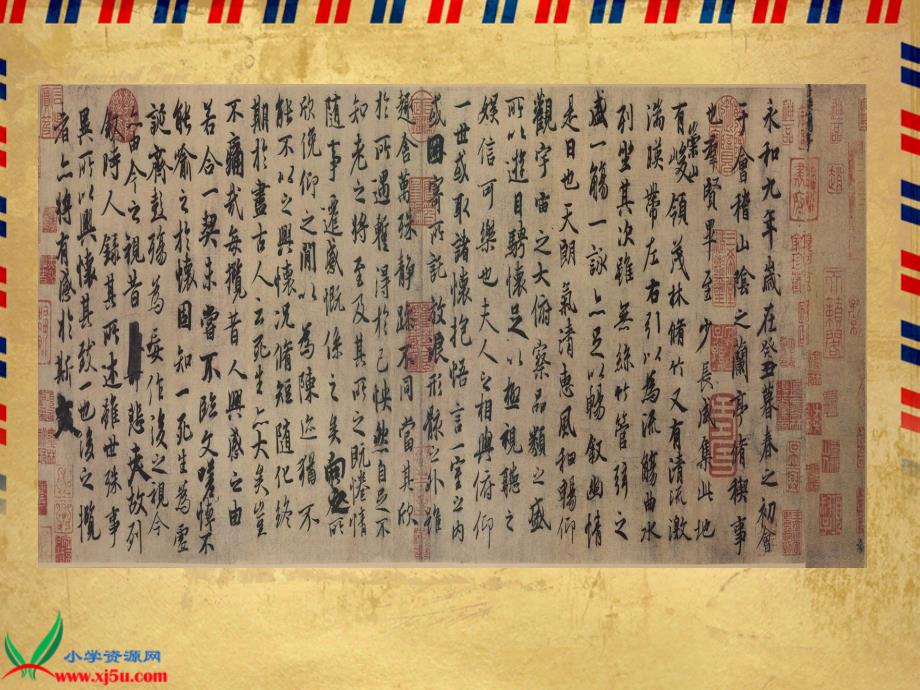 永和九年歲在癸丑暮春之初會
于會稽山陰之蘭亭脩稧事
也羣賢畢至少長咸集此地
有崇山峻領茂林脩竹又有清流激
湍暎帶左右引以為流觴曲水
列坐其次雖無絲竹管弦之
盛一觴一詠亦足以暢敘幽情
是日也天朗氣清惠風和暢仰
觀宇宙之大俯察品類之盛
所以遊目騁懷足以極視聽之
娛信可樂也夫人之相與俯仰
一世或取諸懷抱悟言一室之內
或因寄所託放浪形骸之外雖
趣舍萬殊靜躁不同當其欣
於所遇蹔得於己怏然自足不
知老之將至及其所之既惓情
隨事遷感慨係之矣向之所
欣俛仰之閒以為陳迹猶不
能不以之興懷況脩短隨化終
期於盡古人云死生亦大矣豈
不痛哉每攬昔人興感之由
若合一契未嘗不臨文嗟悼不
能喻之於懷固知一死生為虛
誕齊彭殤為妄作後之視今
亦由今之視昔悲夫故列
敘時人錄其所述雖世殊事
異所以興懷其致一也後之攬
者亦將有感於斯文
小学资源网
www.xj5u.com